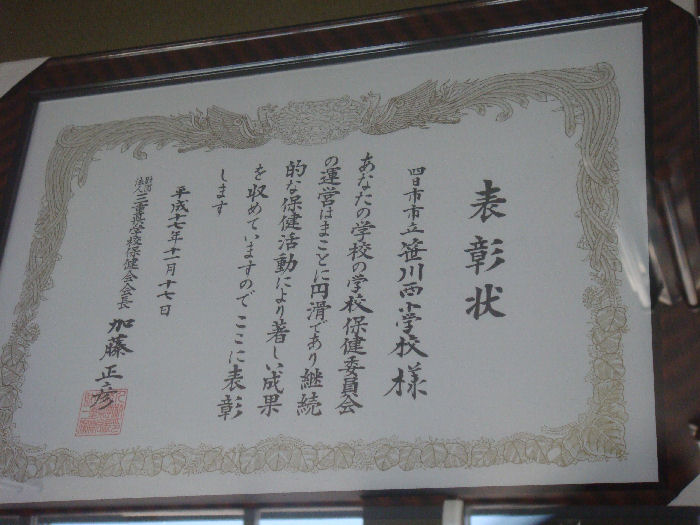 表彰状
四日市市立笹川西小学校様
あなたの学校の学校保健委員会
の運営はまことに円滑であり継続
的な保健活動により著しい成果
を収めていますのでここに表彰
します
平成十七年十一月十七日
財団法人三重県学校保健会会長 加藤正彦